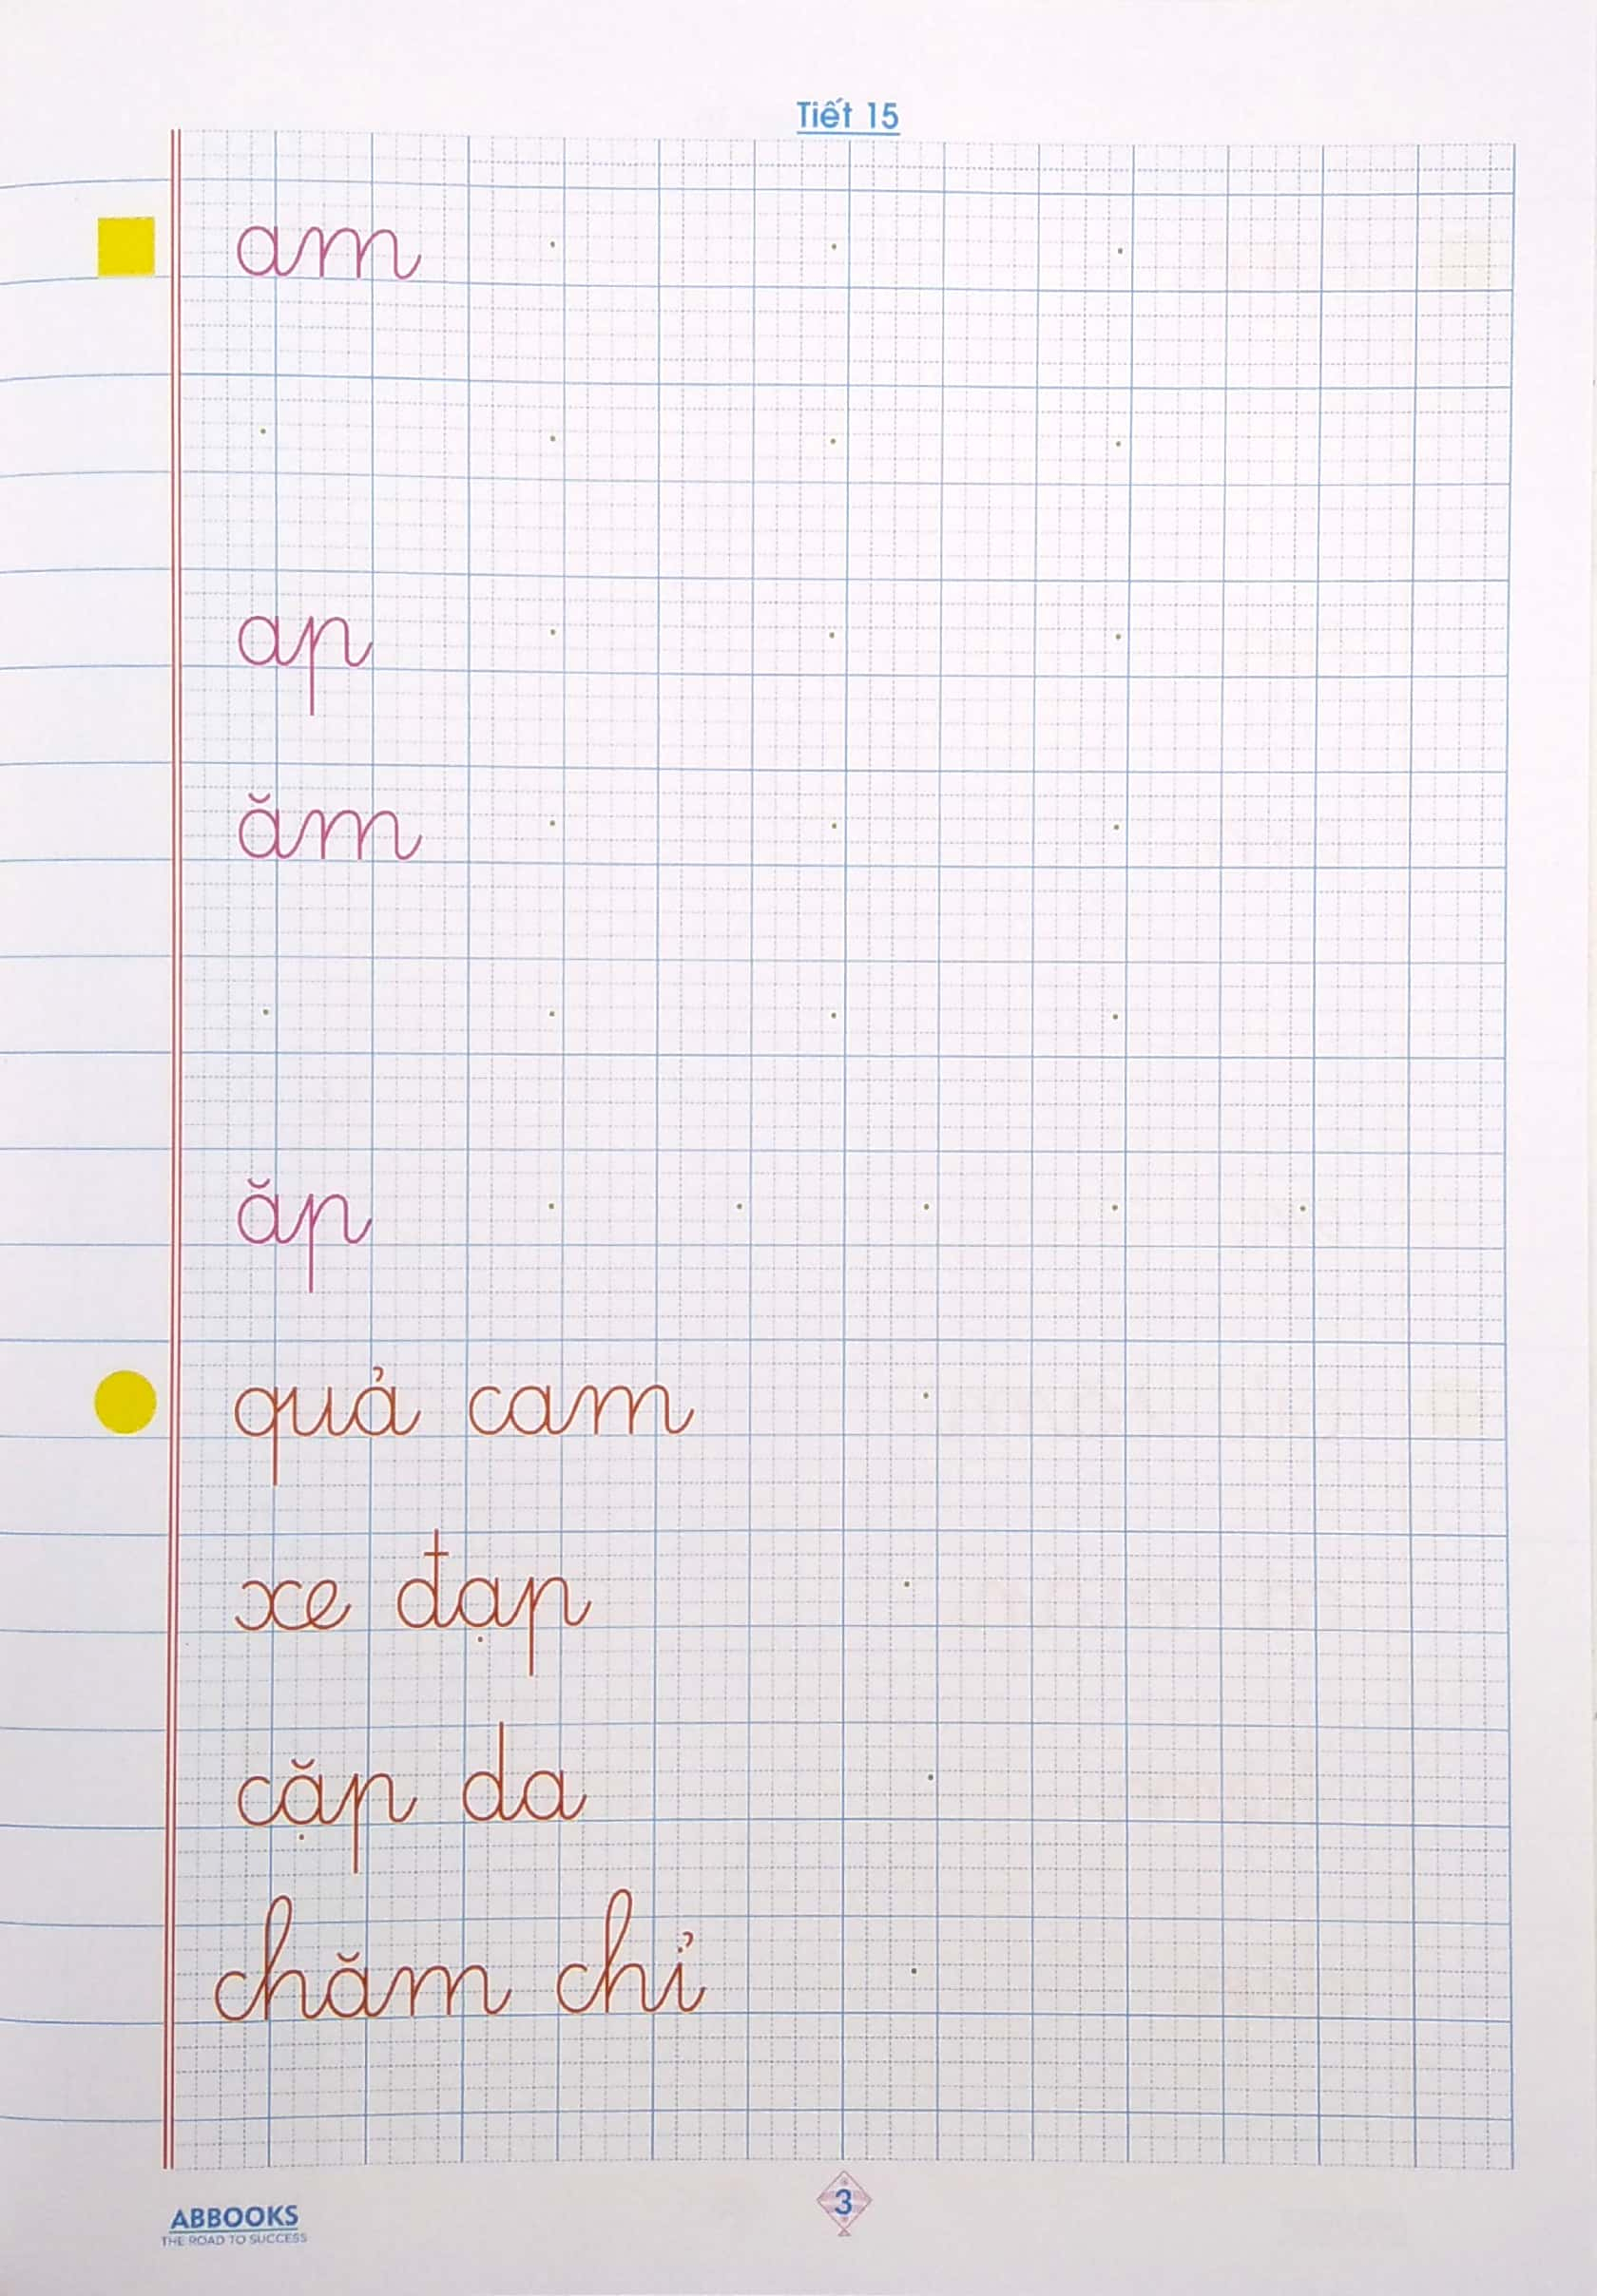 Tiết 15
am
ap
ăm
ăp
quả cam
xe đạp
cặp da
chăm chỉ
3
ABBOOKS
THE ROAD TO SUCCESS